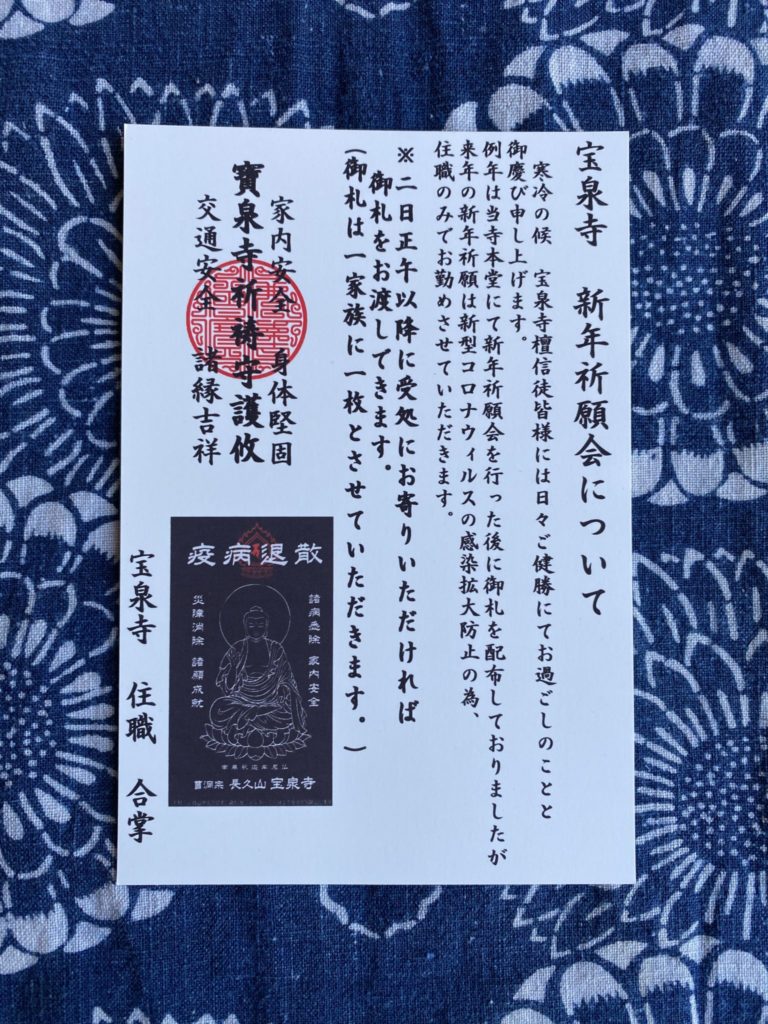 宝泉寺　新年祈願会について
寒冷の候　宝泉寺檀信徒皆様には日々ご健勝にてお過ごしのことと
御慶び申し上げます。
例年は当寺本堂にて新年祈願会を行った後に御札を配布しておりましたが
来年の新年祈願は新型コロナウィルスの感染拡大防止の為、
住職のみでお勤めさせていただきます。
※二日正午以降に受処にお寄りいただければ
御札をお渡しできます。
（御札は一家族に一枚とさせていただきます。）
家内安全　身体堅固
寶泉寺祈祷守護攸
交通安全　諸縁吉祥
疫病退散
諸病悉除　家内安全
災障消除　諸願成就
曹洞宗　長久山　宝泉寺
宝泉寺　住職　合掌